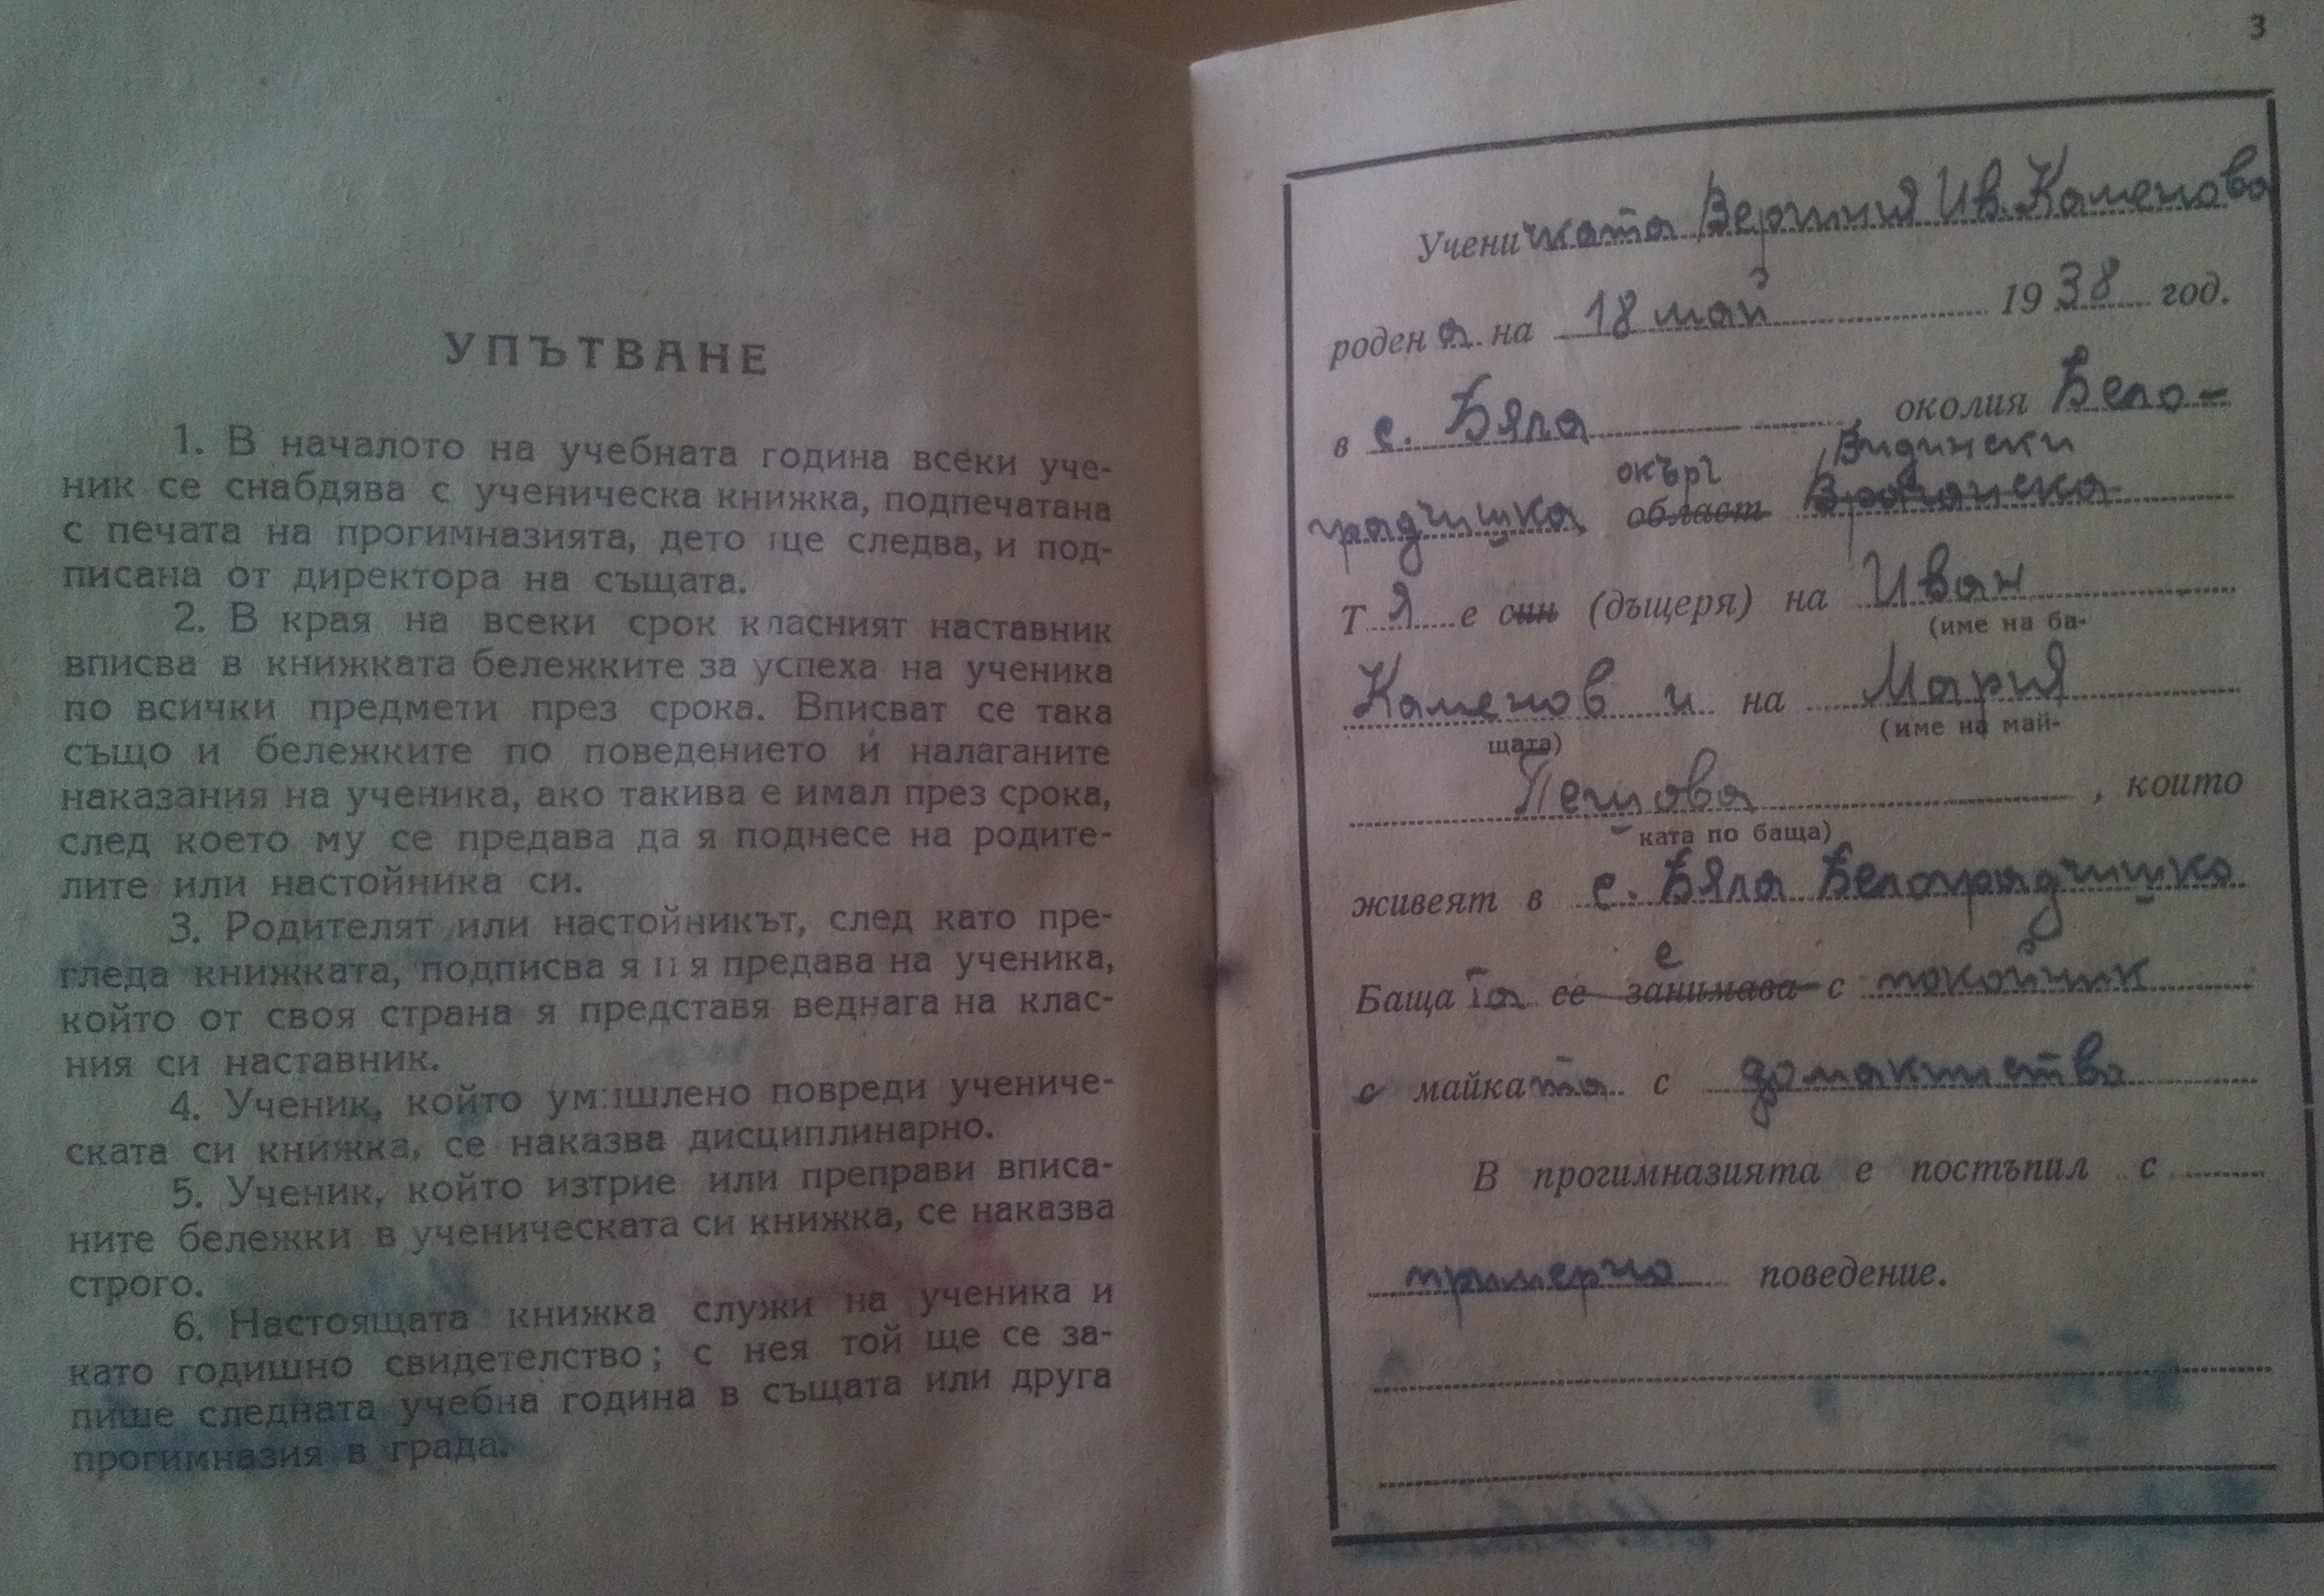 УПЪТВАНЕ
1. В началото на учебната година всеки уче-
ник се снабдява с ученическа книжка, подпечатана
с печата на прогимназията, дето ще следва, и под-
писана от директора на същата.
2. В края на всеки срок класният наставник
вписва в книжката бележките за успеха на ученика
по всички предмети през срока. Вписват се така
също и бележките по поведението и налаганите
наказания на ученика, ако такива е имал през срока,
след което му се предава да я поднесе на родите-
лите или настойника си.
3. Родителят или настойникът, след като пре-
гледа книжката, подписва я и я предава на ученика,
който от своя страна я представя веднага на клас-
ния си наставник.
4. Ученик, който умишлено повреди учениче-
ската си книжка, се наказва дисциплинарно.
5. Ученик, който изтрие или преправи вписа-
ните бележки в ученическата си книжка, се наказва
строго.
6. Настоящата книжка служи на ученика и
като годишно свидетелство; с нея той ще се за-
пише следната учебна година в същата или друга
прогимназия в града.
3
Ученичката Вериния Ив. Каменова
родена на 18 май 1938 год.
в с. Бяла, околия Бело-
окръг Видински
градчишка, област Врачанска
Тя е син (дъщеря) на Иван
(име на ба-
Каменов и на Мария
щата) (име на май-
Петкова, които
ката по баща)
живеят в с. Бяла Белоградчишко
е
Бащата се занимава с покойник
с майката с домакинство
В прогимназията е постъпил с
примерно поведение.